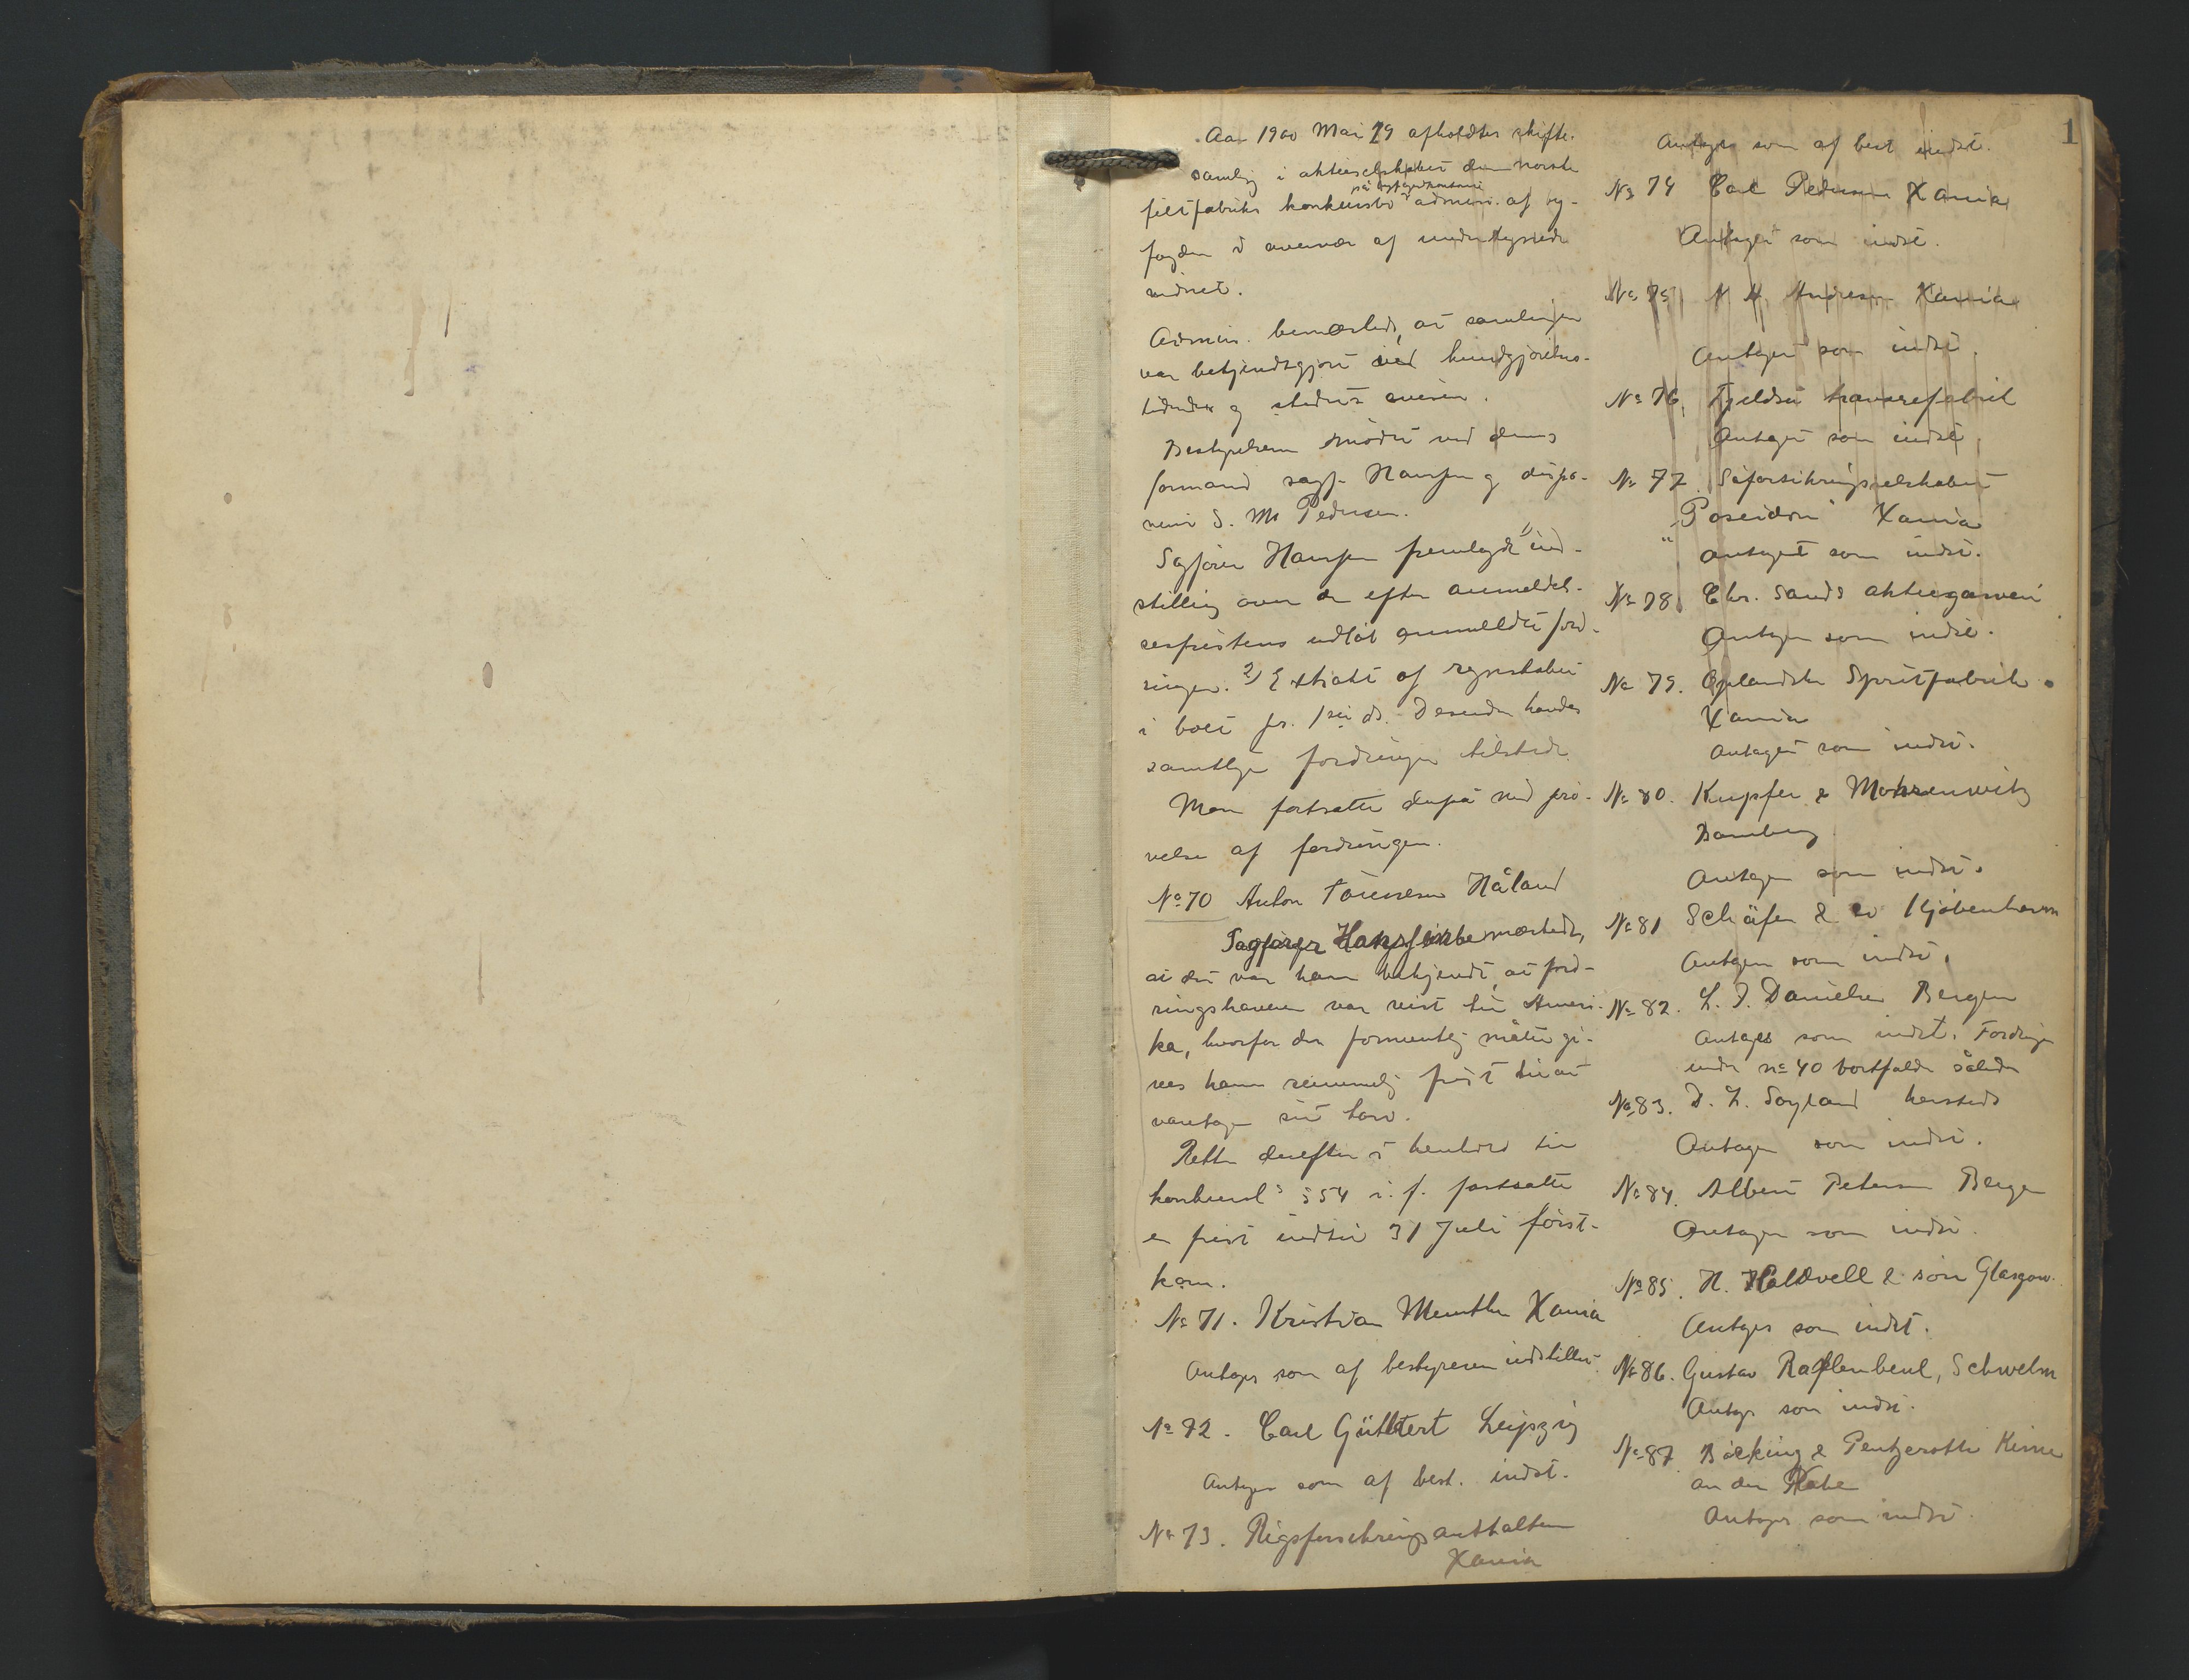 1
Aar 1900 Mai 29 afholdtes skifte-
samlig i aktieselskabet den norske
på byfogedkontoret
filtfabriks konkursbo admin. af by-
fogden i overvær af undertegnede
vidnet.
Admin. bemærkede, at samlingen
var bekjendtgjort ved kundgjørelses-
tidende og stedets aviser.
Bestyrelsen mødte ved dens
formand sagf. Hansen og dispo-
nent S. M. Pedersen.
Sagfører Hansen fremlagde 1) ind-
stillig over de efter anmeldel-
sesfristens udløb anmeldte ford-
ringer. 2) Extrakt af regnskabet
i boet pr. ds. Desuden havdes
samtlige fordringer tilstede
Man fortsatte derpå med prö-
velse af fordringer.
No 70 Anton Tönnesen Håland
Sagfører Hansen bemærkede,
at det var ham bekjendt, at ford-
ringshaveren var reist til Ameri-
ka, hvorfor der formentlig måtte gi-
ves ham rimmelig frist til at
varetage sit tarv.
Retten derefter i henhold til
konkursl s § 54 i. f. fastsatte
en frist indtil 31 Juli först-
kom.
No 71. Kristian Menthe Xania
Antages som af bestyrelsen indstillet
No 72. Carl Güttert Leipzig
Antages som af best. indst.
No 73. Rigsforsikringsanstalten
Xania
Antages som af best indst.
No 74 Carl Pedersen Xania
Antaget som indst.
No 75 N A Andresen Xania
Antaget som indst.
No 76, Fjeldset travarefabrik
Antaget som indst.
No 77. Söforsikringsselskabet
"Poseidon" Xania
antaget som indst.
No 78. Chr. Sands aktiegarveri
Antages som indst.
No 79. Oplandske Spritfabrik.
Xania
Antaget som indst.
No 80. Kupfer & Mohrenwitz
Bamberg
Antages som indst.
No 81 Schäfer & co Kjöbenhavn
Antages som indst.
No 82. L. J. Danielsen Bergen
Antages som indst. Fordringen
under no 40 bortfalder således
No 83. D. L. Söyland hersteds
Antages som indst.
No 84. Albert Petersen Bergen
Antages som indst.
No 85. H. Haldvell & sön Glasgow.
Antages som indst.
No 86. Gustav Rafflenbeul, Schwelm
Antages som indst.
No 87. Böcking & Kirn
an der Nahe
Antages som indst.